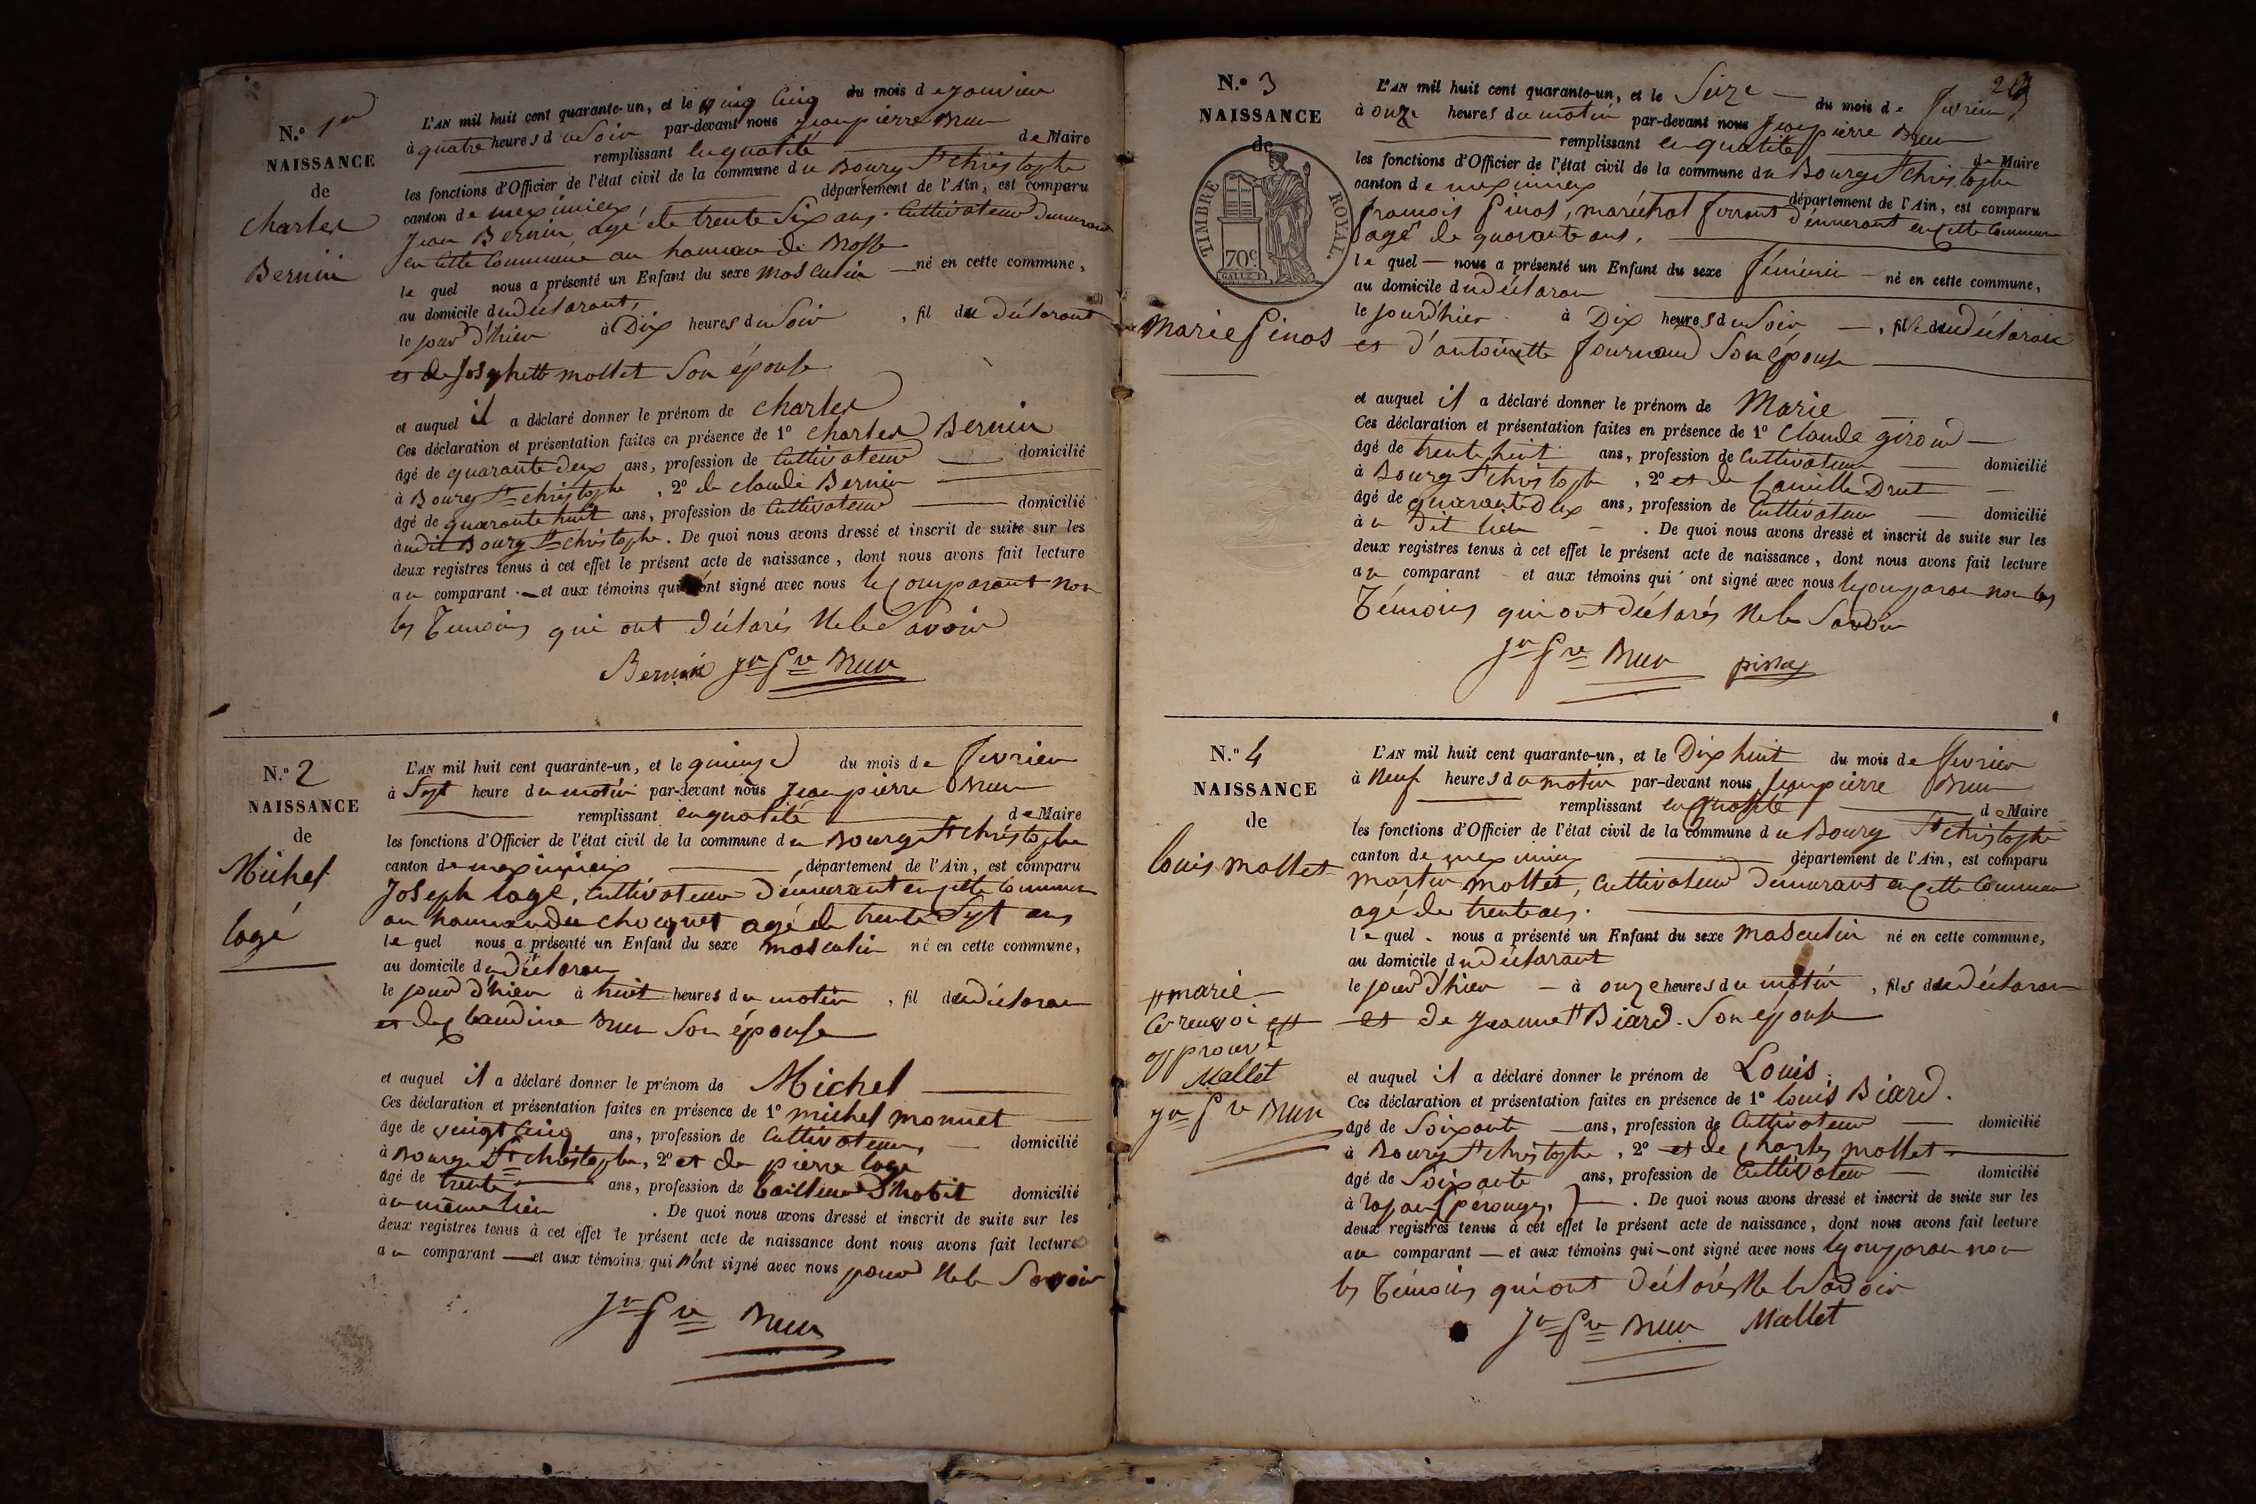 N.° 1er
NAISSANCE
de
Charles
Bernin
L'AN mil huit cent quarante-un, et le vingt cinq du mois de janvier
à quatre heures du Soir par-devant nous jean pierre Brun
remplissant en qualité de Maire
les fonctions d'Officier de l'état civil de la commune du Bourg St christophe
canton de meximieux département de l'Ain, est comparu
Jean Bernin, agé de trente Six ans, Cultivateur demeurant
en Cette Commune au hameau de Brosse
le quel nous a présenté un Enfant du sexe masculin né en cette commune,
au domicile du déclarant,
le jour d'hier à Dix heures du Soir, fil du déclarant
et de Josephette mollet Son épouse
et auquel il a déclaré donner le prénom de Charles
Ces déclaration et présentation faites en présence de 1° Charles Bernin
âgé de quarante deux ans, profession de Cultivateur domicilié
à Bourg St christophe, 2° de claude Bernin
âgé de quarante huit ans, profession de Cultivateur domicilié
au dit Bourg St christophe. De quoi nous avons dressé et inscrit de suite sur les
deux registres tenus à cet effet le présent acte de naissance, dont nous avons fait lecture
au comparant et aux témoins qui ont signé avec nous le Comparant non
les Témoins qui ont déclarés Ne le Savoir
Bernin Jn Pre Brun
N.° 2
NAISSANCE
de
Michel
Logé
L'AN mil huit cent quarante-un, et le quinze du mois de fevrier
à Sept heure du matin par-devant nous jean pierre Brun
remplissant en qualité de Maire
les fonctions d'Officier de l'état civil de la commune du Bourg St christophe
canton de meximieux département de l'Ain, est comparu
Joseph logé, Cultivateur Démeurant en Cette Commune
au hameau du Chocquet agé de trente Sept ans
le quel nous a présenté un Enfant du sexe masculin né en cette commune,
au domicile du déclaran
le jour d'hier à huit heures du matin, fil du déclaran
et de Claudine Brun Son épouse
et auquel il a déclaré donner le prénom de Michel
Ces déclaration et présentation faites en présence de 1° michel monnet
âgé de vingt Cinq ans, profession de Cultivateur, domicilié
à Bourg St christophe, 2° et de pierre loge
âgé de trente ans, profession de tailleur d'habit domicilié
au même lieu. De quoi nous avons dressé et inscrit de suite sur les
deux registres tenus à cet effet le présent acte de naissance dont nous avons fait lecture
au comparant et aux témoins qui n'ont signé avec nous pour Ne le Savoir
Jn Pre Brun
N.° 3
NAISSANCE
de
TIMBRE ROYAL.
70c
Marie Pinos
L'AN mil huit cent quarante-un, et le Seize du mois de fevrier
à onze heures du matin par-devant nous jean pierre Brun
remplissant en qualité de Maire
les fonctions d'Officier de l'état civil de la commune du Bourg St christophe
canton de meximieux département de l'Ain, est comparu
francois Pinos, maréchal ferrant démeurant en Cette Commune
agé de quarante ans.
le quel nous a présenté un Enfant du sexe féminin né en cette commune,
au domicile du déclaran
le jour d'hier à Dix heures du Soir, fille du déclaran
et d'antoinette fournand Son épouse
et auquel il a déclaré donner le prénom de Marie
Ces déclaration et présentation faites en présence de 1° Claude giroud
âgé de trente huit ans, profession de Cultivateur domicilié
à Bourg St christophe, 2° et de Camille Drut
âgé de quarante Deux ans, profession de Cultivateur domicilié
au dit lieu. De quoi nous avons dressé et inscrit de suite sur les
deux registres tenus à cet effet le présent acte de naissance, dont nous avons fait lecture
au comparant et aux témoins qui ont signé avec nous le Comparan non les
Témoins qui ont déclarés Ne le Savoir
Jn Pre Brun
N.° 4
NAISSANCE
de
Louis Mollet
L'AN mil huit cent quarante-un, et le Dix huit du mois de fevrier
à Neuf heures du matin par-devant nous Jean pierre Brun
remplissant en qualité de Maire
les fonctions d'Officier de l'état civil de la commune du Bourg St christophe
canton de meximieux département de l'Ain, est comparu
martin mollet, Cultivateur démeurant en Cette Commune
agé de trente ans.
le quel nous a présenté un Enfant du sexe masculin né en cette commune,
au domicile du déclarant
le jour d'hier à onze heures du matin, fils du déclaran
et de jeannette Biard. Son épouse
marie
Ce renvoi est
approuvé
Mallet
Jn Pre Brun
et auquel il a déclaré donner le prénom de Louis.
Ces déclaration et présentation faites en présence de 1° Louis Biard.
âgé de Soixante ans, profession de Cultivateur domicilié
à Bourg St christophe, 2° et de Charles mollet
âgé de Soixante ans, profession de Cultivateur domicilié
à (pérouges). De quoi nous avons dressé et inscrit de suite sur les
deux registres tenus à cet effet le présent acte de naissance, dont nous avons fait lecture
au comparant et aux témoins qui ont signé avec nous le Comparan non
les Témoins qui ont déclarés Ne le Savoir
Jn Pre Brun Mallet